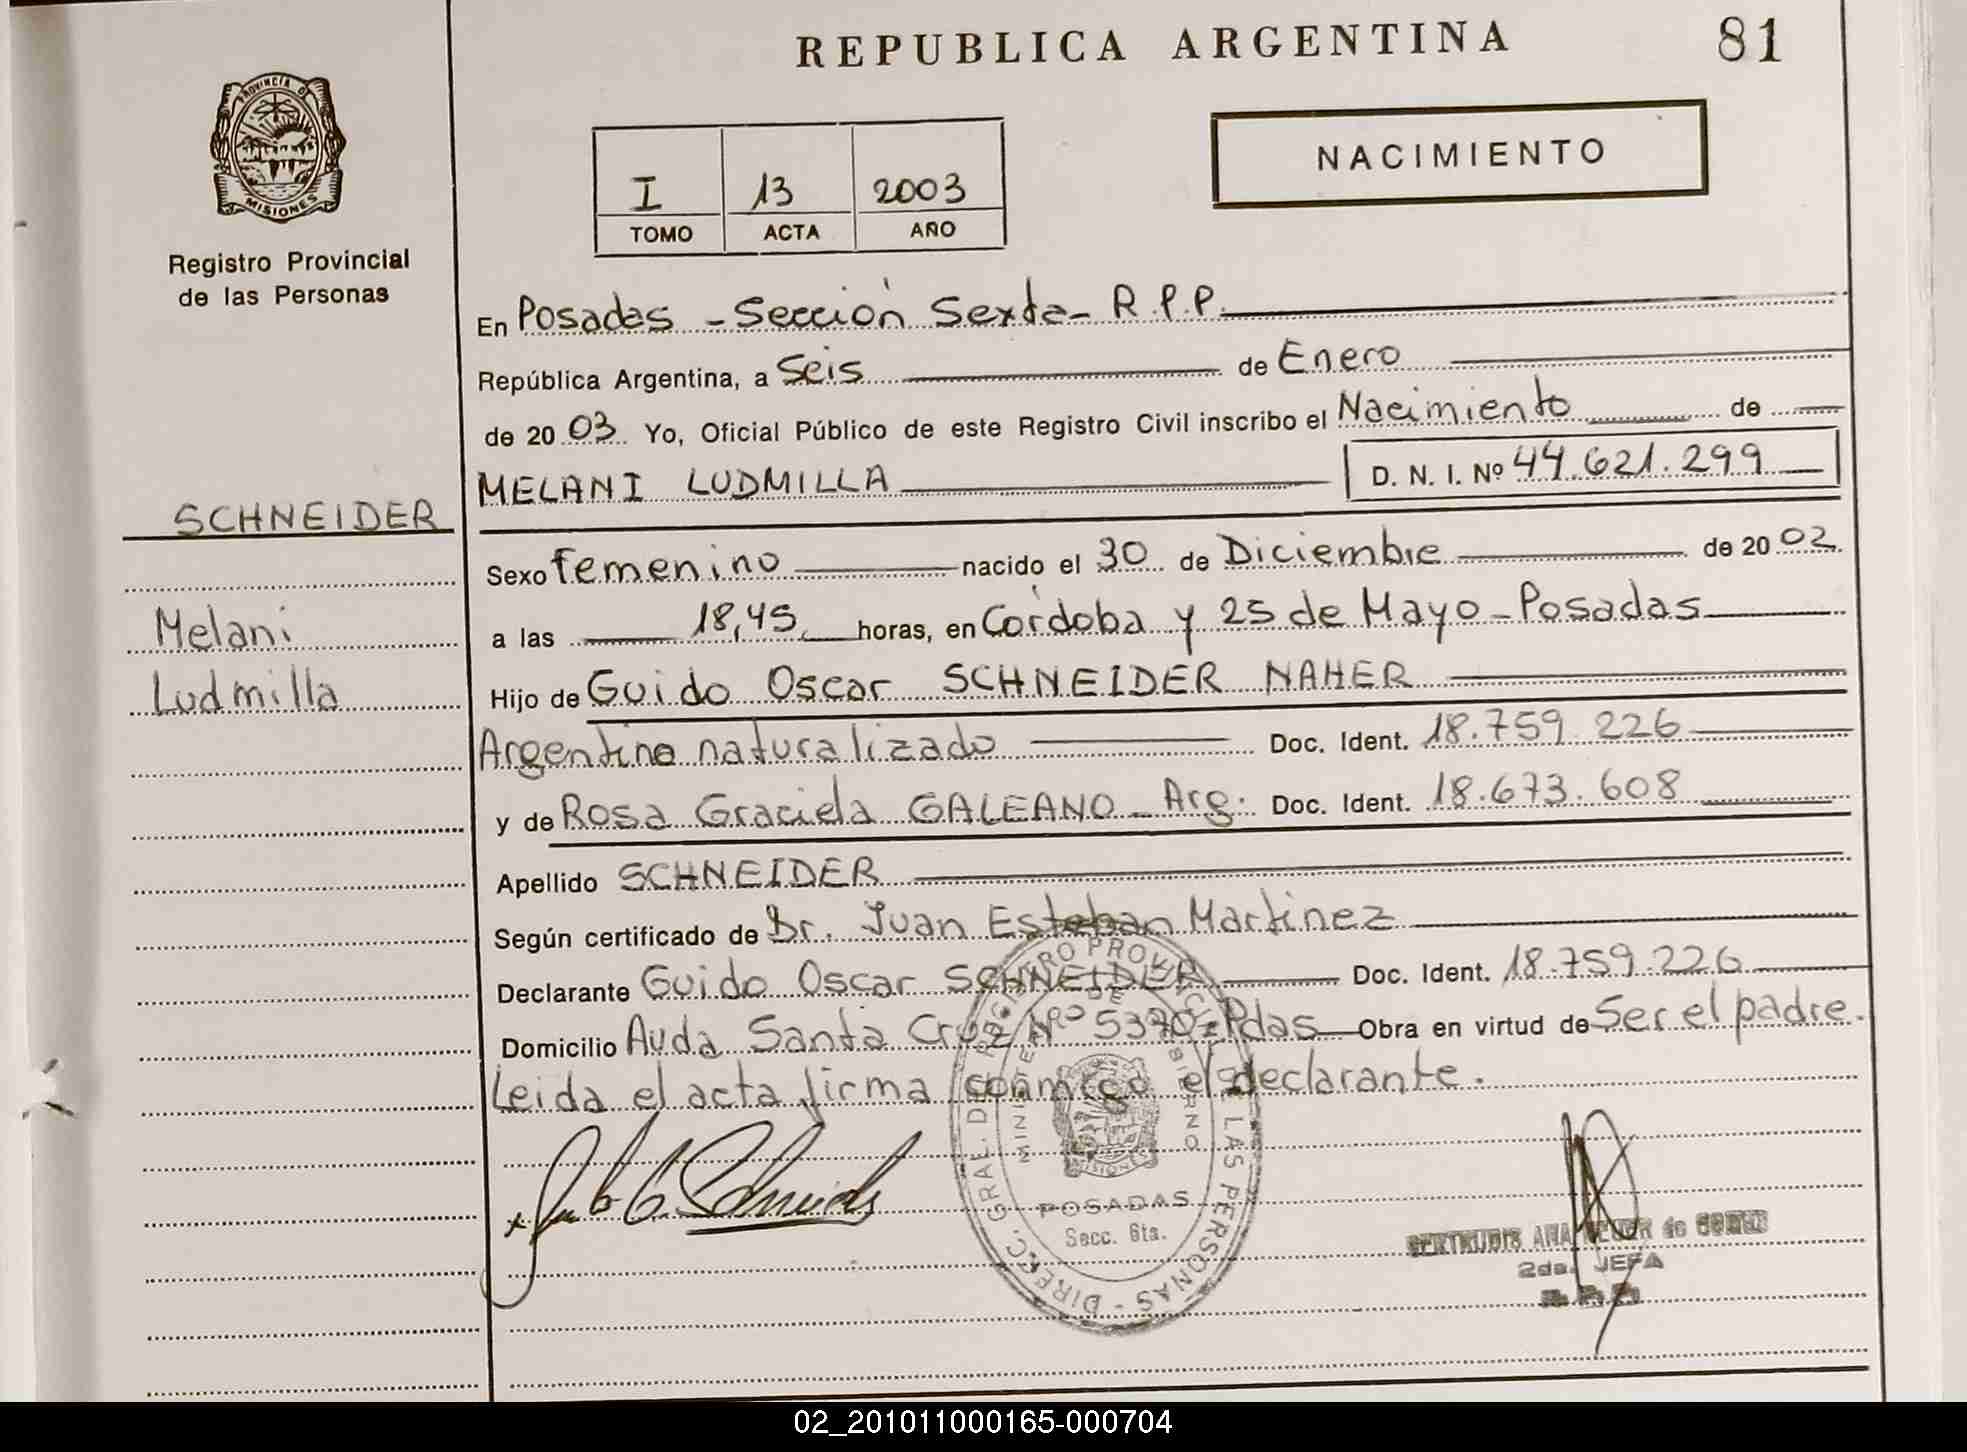 REPUBLICA ARGENTINA
81
PROVINCIA DE
MISIONES
Registro Provincial
de las Personas
I 13 2003
TOMO ACTA AÑO
NACIMIENTO
En Posadas - Sección Sexta - R.P.P.
República Argentina, a Seis de Enero
de 20 03 Yo, Oficial Público de este Registro Civil inscribo el Nacimiento de
MELANI LUDMILLA D. N. I. Nº 44.621.299
SCHNEIDER
Sexo femenino nacido el 30 de Diciembre de 20 02
Melani
a las 18,45 horas, en Córdoba y 25 de Mayo - Posadas
Ludmilla
Hijo de Guido Oscar SCHNEIDER NAHER
Argentino naturalizado Doc. Ident. 18.759.226
y de Rosa Graciela GALEANO - Arg. Doc. Ident. 18.673.608
Apellido SCHNEIDER
Según certificado de Dr. Juan Esteban Martinez
Declarante Guido Oscar SCHNEIDER Doc. Ident. 18.759.226
Domicilio Avda Santa Cruz Nro 5370 - Pdas Obra en virtud de Ser el padre.
Leida el acta firma conmigo el declarante.
DIREC. GRAL. DE REGISTRO PROVINCIAL DE LAS PERSONAS
MISIONES
POSADAS
Secc. 6ta.
GERTRUDIS ANA de GOMEZ
2da. JEFA
02_201011000165-000704